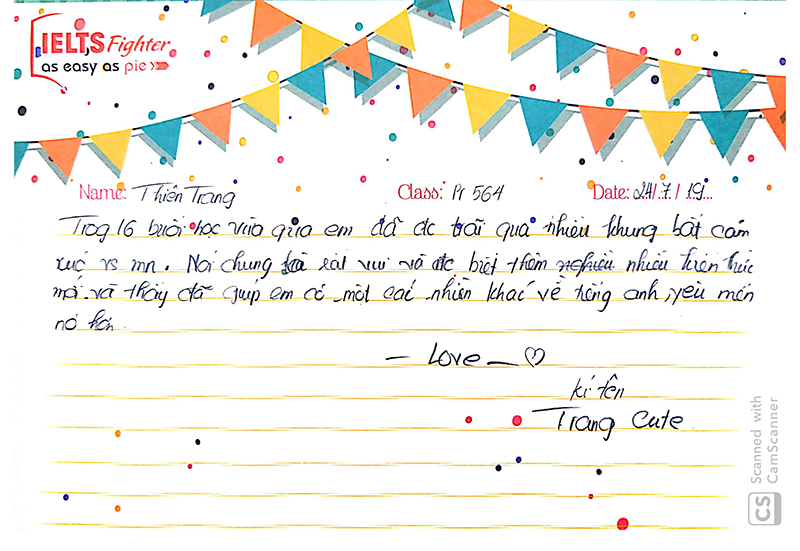 IELTS Fighter
as easy as pie
Name: Thiên Trang Class: Pr 564 Date: 24/.7./.19...
Trog 16 buổi học vừa qua em đã đc trãi qua nhiều khung bật cảm
xúc vs mn. Nói chung là rất vui và đc biệt thêm nhiều kiến thức
mới và thầy đã giúp em có một cái nhìn khác về tiếng anh, yêu mến
nó hơn.
— Love — ♡
kí tên
Trang Cute
CS Scanned with
CamScanner